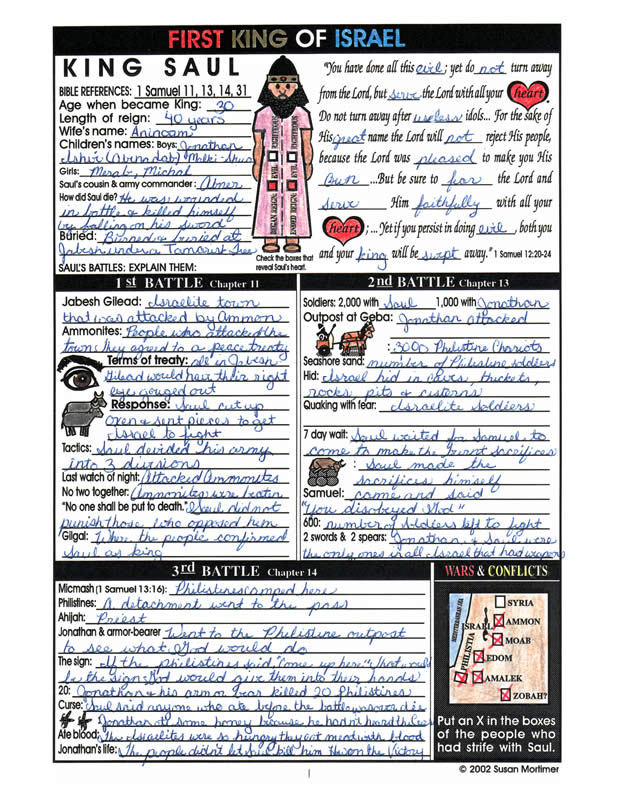 FIRST KING OF ISRAEL
KING SAUL
BIBLE REFERENCES: 1 Samuel 11, 13, 14, 31
Age when became King: 30
Length of reign: 40 years
Wife's name:
Children's names: Boys: Jonathan
(Abinadab) Malki-Shua
Girls: Merab, Michal
Saul's cousin & army commander: Abner
How did Saul die? He was wounded
in battle & killed himself
by falling on his sword
Buried: Burned & buried at
Jabesh under a Tamarisk Tree
SAUL'S BATTLES: EXPLAIN THEM:
EVIL RIGHTEOUS
EVIL RIGHTEOUS
BEGAN REIGN: ENDED REIGN:
Check the boxes that
reveal Saul's heart.
"You have done all this evil; yet do not turn away
from the Lord, but serve the Lord with all your heart.
Do not turn away after useless idols... For the sake of
His great name the Lord will not reject His people,
because the Lord was pleased to make you His
own ...But be sure to fear the Lord and
serve Him faithfully with all your
heart; ...Yet if you persist in doing evil, both you
and your king will be swept away." 1 Samuel 12:20-24
1st BATTLE Chapter 11
Jabesh Gilead: Israelite town
that was attacked by Ammon
Ammonites: People who attacked the
town; they agreed to a peace treaty
Terms of treaty: all in Jabesh
Gilead would have their right
eye gouged out
Response: Saul cut up
oxen & sent pieces to get
Israel to fight
Tactics: Saul divided his army
into 3 divisions
Last watch of night: Attacked Ammonites
No two together: Ammonites were beaten
"No one shall be put to death." Saul did not
punish those who opposed him
Gilgal: Where the people confirmed
Saul as king
2nd BATTLE Chapter 13
Soldiers: 2,000 with Saul 1,000 with Jonathan
Outpost at Geba: Jonathan attacked
: 3000 Philistine Chariots
Seashore sand: number of Philistine soldiers
Hid: Israel hid in caves, thickets,
rocks, pits & cisterns
Quaking with fear: Israelite soldiers
7 day wait: Saul waited for Samuel to
come to make the burnt sacrifices
: Saul made the
sacrifices himself
Samuel: came and said
"You disobeyed God"
600: number of soldiers left to fight
2 swords & 2 spears: Jonathan & Saul were
the only ones in all Israel that had weapons
3rd BATTLE Chapter 14
Micmash (1 Samuel 13:16): Philistines camped here
Philistines: A detachment went to the pass
Ahijah: Priest
Jonathan & armor-bearer Went to the Philistine outpost
to see what God would do
The sign: If the philistines said "Come up here" that would
be the sign God would give them into their hands
20: Jonathan & his armor bearer killed 20 Philistines
Curse: Saul said anyone who ate before the battle was over die
Jonathan ate some honey because he hadn't heard the Curse
Ate blood: The Israelites were so hungry they ate meat with blood
Jonathan's life: The people didn't let Saul kill him the Victory
WARS & CONFLICTS
MEDITERRANEAN SEA
ISRAEL
PHILISTIA
SYRIA
AMMON
MOAB
EDOM
AMALEK
ZOBAH?
Put an X in the boxes
of the people who
had strife with Saul.
1
© 2002 Susan Mortimer